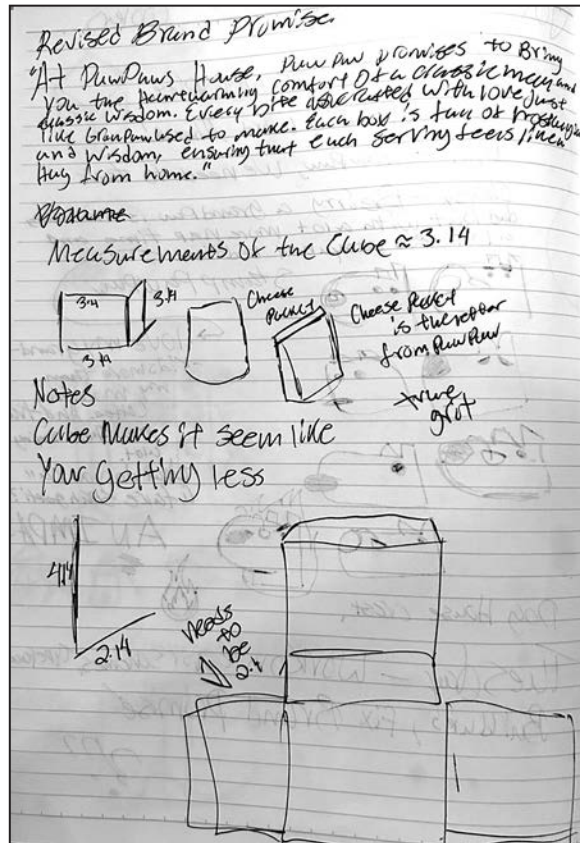 Revised Brand Promise
"At PawPaws House, PawPaw promises to Bring
you the heartwarming comfort Of a classic meal and
classic wisdom. Every bite is crafted with love Just
like GranPaw used to make. Each box is full of
and Wisdom, ensuring that each serving feels like a
Hug from home."
Measurements Of the Cube ≈ 3.14
3.14
3.14
3.14
Cheese
Packet
Cheese Packet
is the letter
from PawPaw
true
grit
Notes
Cube Makes it seem like
Your getting less
4.14
2.14
needs
to
be
2.1